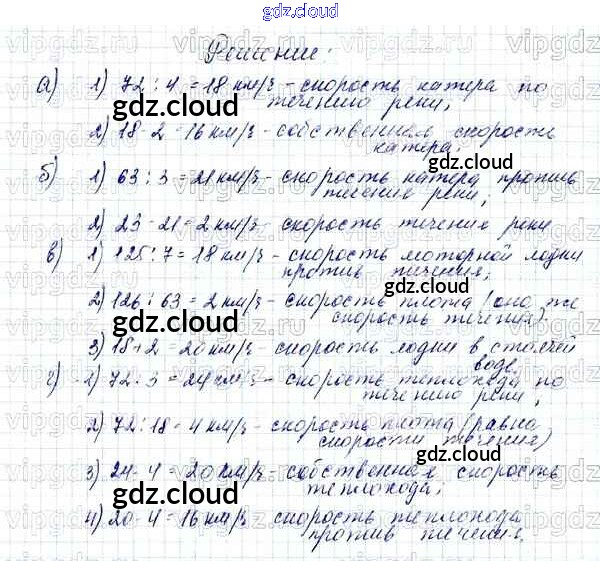 gdz.cloud
Решение:
а) 1) 72 : 4 = 18 км/ч - скорость катера по
течению реки;
2) 18 - 2 = 16 км/ч - собственная скорость
катера;
б) 1) 63 : 3 = 21 км/ч - скорость катера против
течения реки;
2) 23 - 21 = 2 км/ч - скорость течения реки
в) 1) 125 : 7 = 18 км/ч - скорость моторной лодки
против течения;
2) 126 : 63 = 2 км/ч - скорость плота (она же
скорость течения).
3) 18 + 2 = 20 км/ч - скорость лодки в стоячей
воде.
г) 1) 72 : 3 = 24 км/ч - скорость теплохода по
течению реки;
2) 72 : 18 = 4 км/ч - скорость плота (равна
скорости течения)
3) 24 - 4 = 20 км/ч - собственная скорость
теплохода;
4) 20 - 4 = 16 км/ч скорость теплохода
против течения.
gdz.cloud
gdz.cloud
gdz.cloud
gdz.cloud
gdz.cloud
gdz.cloud
gdz.cloud
gdz.cloud